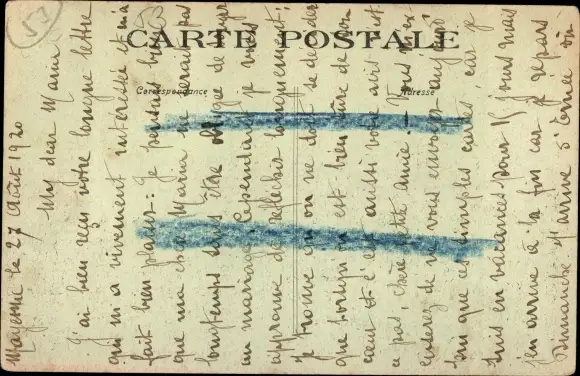 53
CARTE POSTALE
Correspondance
Adresse
Mayenne le 27 Août 1920
My dear Maria
J'ai bien reçu votre longue lettre
qui m'a vivement intéressée et m'a
fait bien plaisir. Je pensais bien
que ma chère Maria ne serait pas
longtemps sans être obligée de
au mariage. Cependant je vous
approuve de réfléchir longuement;
je trouve qu'on ne doit se décider
que lorsqu'on est bien sûre de son
cœur et c'est aussi votre avis n'est
ce pas, chère petite amie! Vous m'ex
cuserez de ne vous envoyer aujourd
hui que ces simples cartes, car je
suis en vacances pour 15 jours mais
j'en arrive à la fin car je repars
Dimanche. M'arrive